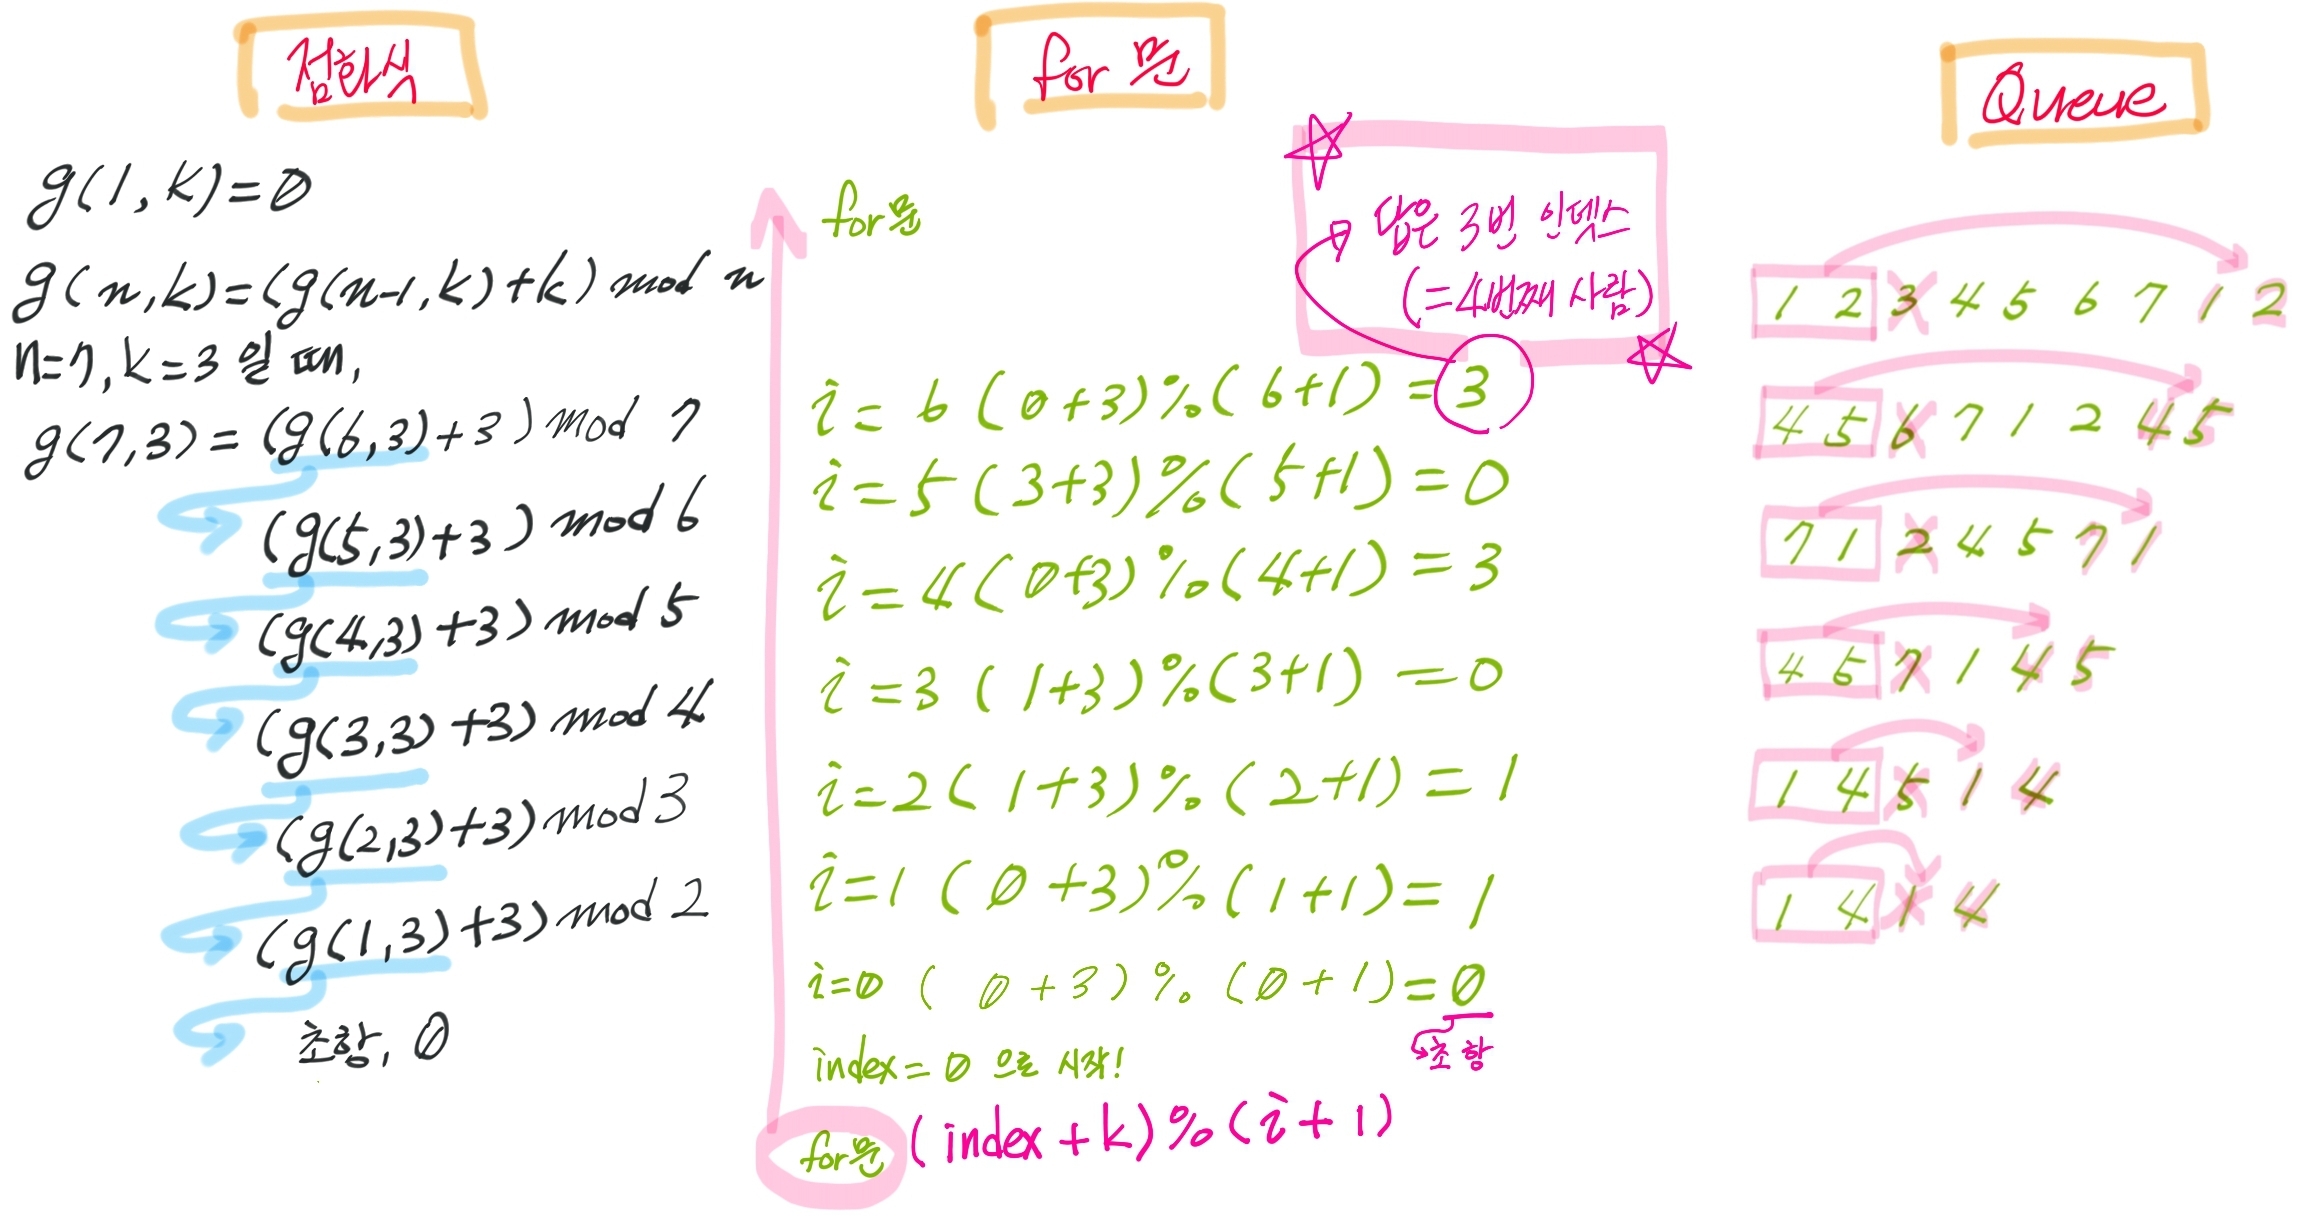 점화식
g(1,k)=0
g(n,k)=(g(n-1,k)+k) mod n
n=7,k=3 일 때,
g(7,3)=(g(6,3)+3) mod 7
(g(5,3)+3) mod 6
(g(4,3)+3) mod 5
(g(3,3)+3) mod 4
(g(2,3)+3) mod 3
(g(1,3)+3) mod 2
초항, 0
for 문
for문
답은 3번 인덱스
(=4번째 사람)
i=6 (0+3)%(6+1)=3
i=5 (3+3)%(5+1)=0
i=4 (0+3)%(4+1)=3
i=3 (1+3)%(3+1)=0
i=2 (1+3)%(2+1)=1
i=1 (0+3)%(1+1)=1
i=0 (0+3)%(0+1)=0
초항
index=0 으로 시작!
for문 (index+k)%(i+1)
Queue
1 2 3 4 5 6 7 1 2
4 5 6 7 1 2 4 5
7 1 2 4 5 7 1
4 5 7 1 4 5
1 4 5 1 4
1 4 1 4